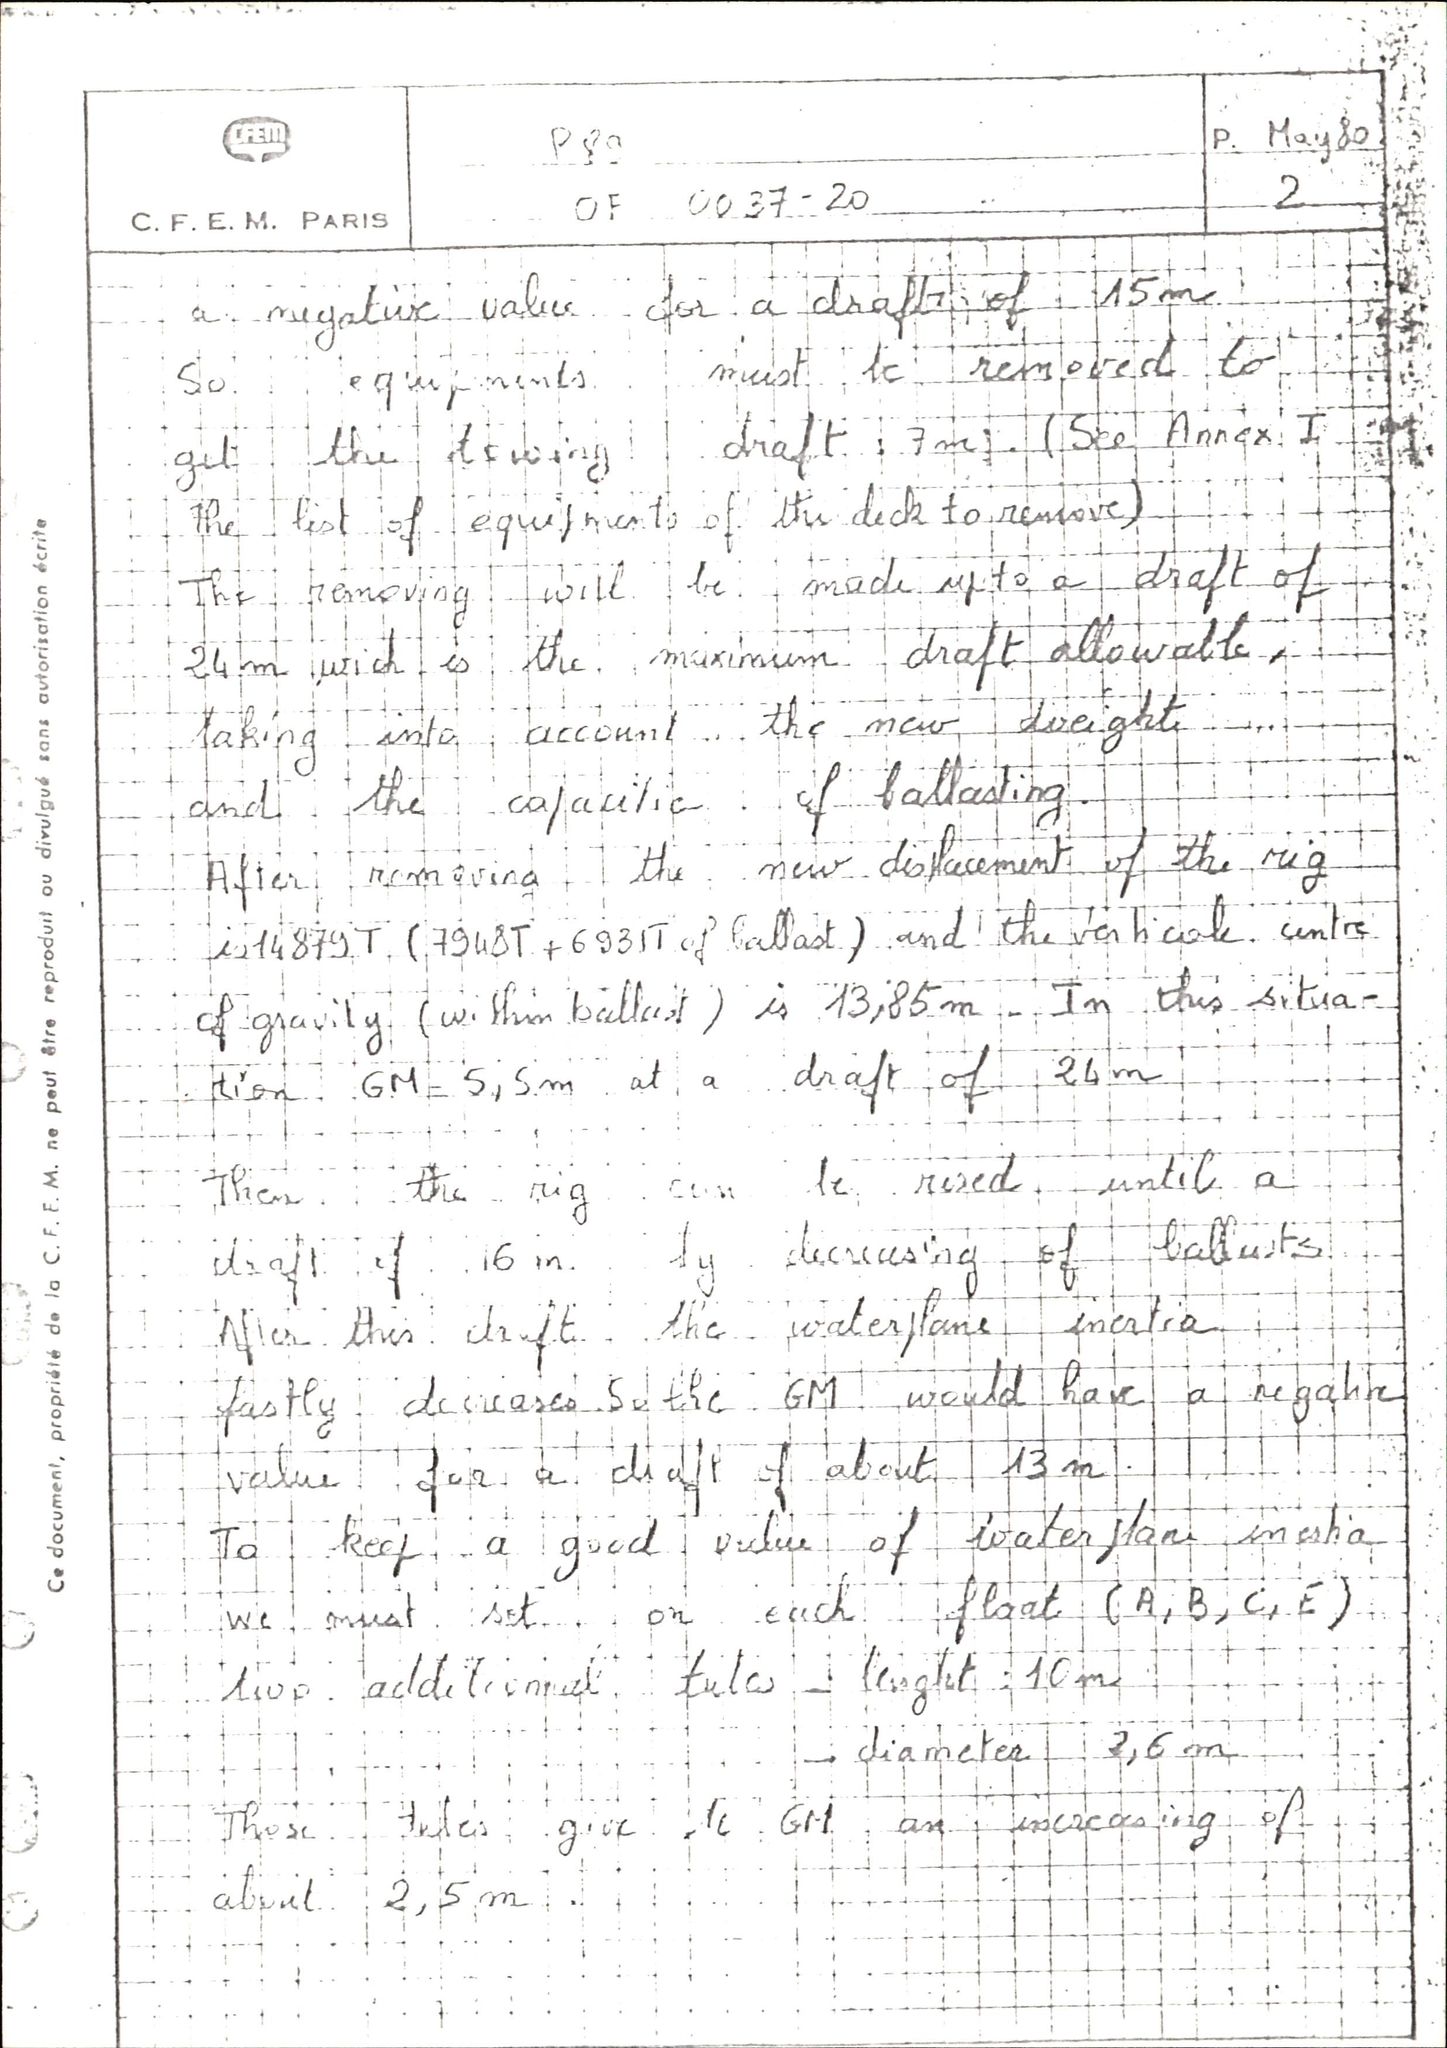 CFEM
C. F. E. M. PARIS
P80
OF 0037-20
P. May 80
2
a negative value for a draft of 15m
So equipments must be removed to
get the towing draft : 7m. (See Annex I
the list of equipments of the deck to remove)
The removing will be made up to a draft of
24m wich is the maximum draft allowable,
taking into account the new weight
and the capacitie of ballasting.
After removing the new displacement of the rig
is 14879T (7948T + 6931T of ballast) and the verticale centre
of gravity (within ballast) is 13,85m - In this situa-
tion GM = 5,5m at a draft of 24m
Then the rig can be rised until a
draft of 16 m by decreasing of ballasts
After this draft the waterplane inertia
fastly decreases So the GM would have a negative
value for a draft of about 13m.
To keep a good value of waterplane inertia
we must set on each float (A, B, C, E)
two additionnal tubes - lenght : 10m
- diameter 2,6 m
Those tubes give to GM an increasing of
about 2,5 m.
Ce document, propriété de la C. F. E. M. ne peut être reproduit ou divulgué sans autorisation écrite